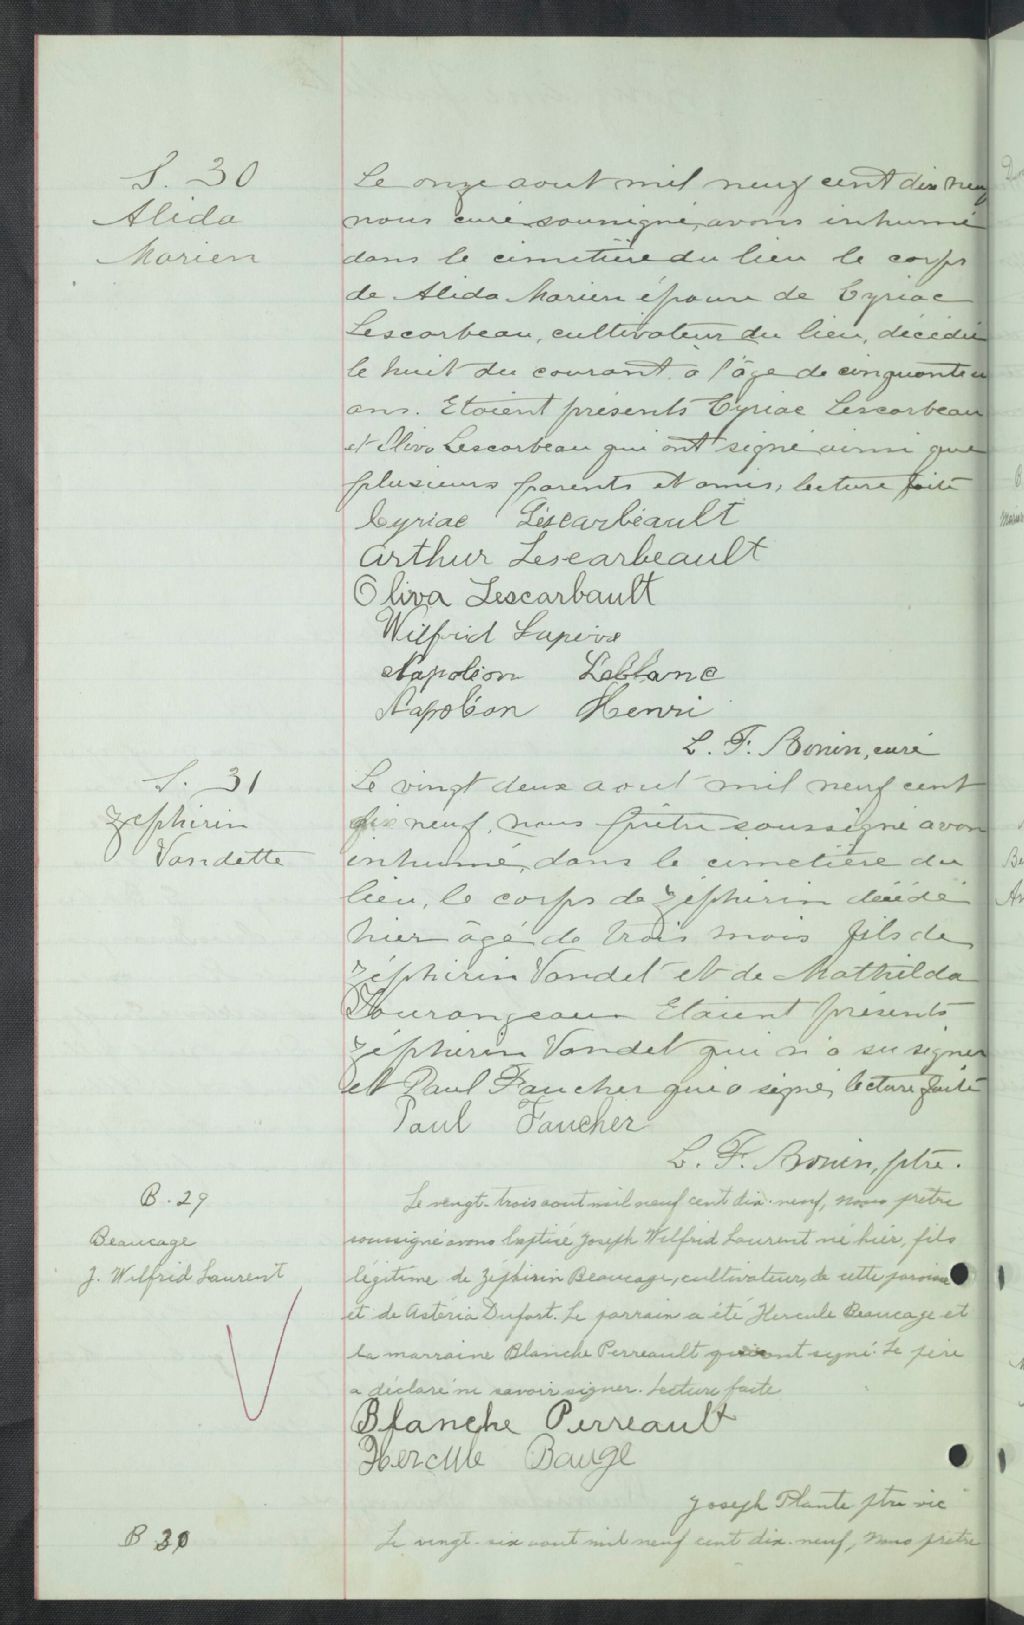 S. 30
Alida
Marien
Le onze aout mil neuf cent dix neuf
nous curé soussigné, avons inhumé
dans le cimetière du lieu le corps
de Alida Marien épouse de Cyriac
Lescarbeau, cultivateur du lieu, décédée
le huit du courant à l'âge de cinquante
ans. Etaient présents Cyriac Lescarbeau
et Oliva Lescarbeau qui ont signé ainsi que
plusieurs parents et amis, lecture faite
Cyriac Léscarbéault
Arthur Lescarbeault
Oliva Lescarbault
Wilfrid
Napoléon Leblanc
Napoléon Henri
L. F. Bonin, curé
S. 31
Zéphirin
Vandette
Le vingt deux aout mil neuf cent
dix neuf, nous prêtre soussigné avons
inhumé, dans le cimetière du
lieu, le corps de Zéphirin décédé
hier âgé de trois mois fils de
Zéphirin Vandet et de Mathilda
Tourangeau Etaient présents
Zéphirin Vandet qui n'a su signer
et Paul Faucher qui a signé, lecture faite
Paul Faucher
L. F. Bonin, ptre.
B. 29
Beaucage
J. Wilfrid Laurent
Le vingt-trois aout mil neuf cent dix-neuf, nous prêtre
soussigné avons baptisé Joseph Wilfrid Laurent né hier, fils
légitime de Zéphirin Beaucage, cultivateur, de cette paroisse
et de Astéria Dufort. Le parrain a été Hercule Beaucage et
la marraine Blanche Perreault qui ont signé. Le père
a déclaré ne savoir signer. Lecture faite
Blanche Perreault
Hercule Bauge
Joseph Plante ptre vic
B 30
Le vingt-six aout mil neuf cent dix-neuf, nous prêtre